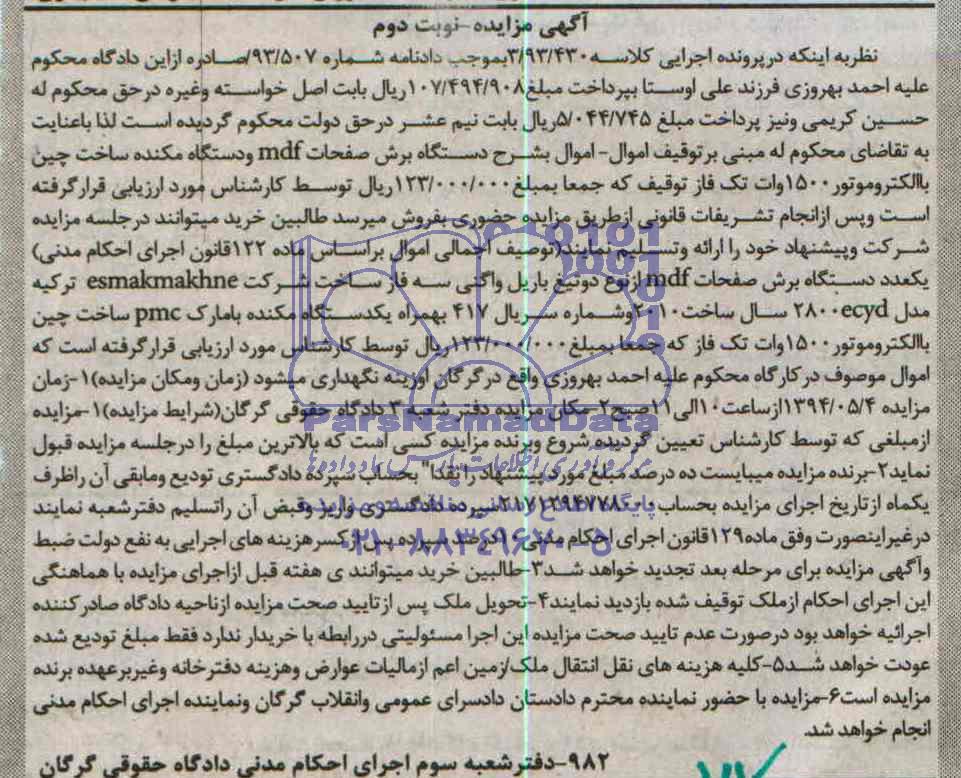 آگهی مزایده-نوبت دوم
نظربه اینکه درپرونده اجرایی کلاسه۳/۹۳/۴۳۰بموجب دادنامه شماره ۹۳/۵۰۷/صادره ازاین دادگاه محکوم
علیه احمد بهروزی فرزند علی اوستا بپرداخت مبلغ۱۰۷/۴۹۴/۹۰۸ریال بابت اصل خواسته وغیره درحق محکوم له
حسین کریمی ونیز پرداخت مبلغ ۵/۰۴۴/۷۴۵ریال بابت نیم عشر درحق دولت محکوم گردیده است لذا باعنایت
به تقاضای محکوم له مبنی برتوقیف اموال-اموال بشرح دستگاه برش صفحات mdf ودستگاه مکنده ساخت چین
باالکتروموتور۱۵۰۰وات تک فاز توقیف که جمعا بمبلغ۱۲۳/۰۰۰/۰۰۰ریال توسط کارشناس مورد ارزیابی قرارگرفته
است وپس ازانجام تشریفات قانونی ازطریق مزایده حضوری بفروش میرسد طالبین خرید میتوانند درجلسه مزایده
شرکت وپیشنهاد خود را ارائه وتسلیم نمایند(توصیف اجمالی اموال براساس ماده ۱۲۲قانون اجرای احکام مدنی)
یکعدد دستگاه برش صفحات mdf ازنوع دوتیغ باریل واگنی سه فاز ساخت شرکت esmakmakhne ترکیه
مدل ۲۸۰۰ecyd سال ساخت۲۰۱۰وشماره سریال ۴۱۷ بهمراه یکدستگاه مکنده بامارک pmc ساخت چین
باالکتروموتور۱۵۰۰وات تک فاز که جمعا بمبلغ۱۲۳/۰۰۰/۰۰۰ریال توسط کارشناس مورد ارزیابی قرارگرفته است که
اموال موصوف درکارگاه محکوم علیه احمد بهروزی واقع درگرگان اوزینه نگهداری میشود (زمان ومکان مزایده)۱-زمان
مزایده ۱۳۹۴/۰۵/۴ازساعت۱۰الی۱۱صبح۲-مکان مزایده دفتر شعبه ۳ دادگاه حقوقی گرگان(شرایط مزایده)۱-مزایده
ازمبلغی که توسط کارشناس تعیین گردیده شروع وبرنده مزایده کسی است که بالاترین مبلغ را درجلسه مزایده قبول
نماید۲-برنده مزایده میبایست ده درصد مبلغ مورد پیشنهاد را"نقدا" بحساب سپرده دادگستری تودیع ومابقی آن راظرف
یکماه ازتاریخ اجرای مزایده بحساب سپرده دادگستری واریز وقبض آن راتسلیم دفترشعبه نمایند
درغیراینصورت وفق ماده۱۲۹قانون اجرای احکام مدنی۱۰درصد سپرده پس ازکسرهزینه های اجرایی به نفع دولت ضبط
وآگهی مزایده برای مرحله بعد تجدید خواهد شد۳-طالبین خرید میتوانند ی هفته قبل ازاجرای مزایده با هماهنگی
این اجرای احکام ازملک توقیف شده بازدید نمایند۴-تحویل ملک پس ازتایید صحت مزایده ازناحیه دادگاه صادرکننده
اجرائیه خواهد بود درصورت عدم تایید صحت مزایده این اجرا مسئولیتی دررابطه با خریدار ندارد فقط مبلغ تودیع شده
عودت خواهد شد۵-کلیه هزینه های نقل انتقال ملک/زمین اعم ازمالیات عوارض وهزینه دفترخانه وغیربرعهده برنده
مزایده است۶-مزایده با حضور نماینده محترم دادستان دادسرای عمومی وانقلاب گرگان ونماینده اجرای احکام مدنی
انجام خواهد شد.
۹۸۲-دفترشعبه سوم اجرای احکام مدنی دادگاه حقوقی گرگان
ParsNamadData
۰۲۱-۸۸۳۴۹۶۷۰-۵